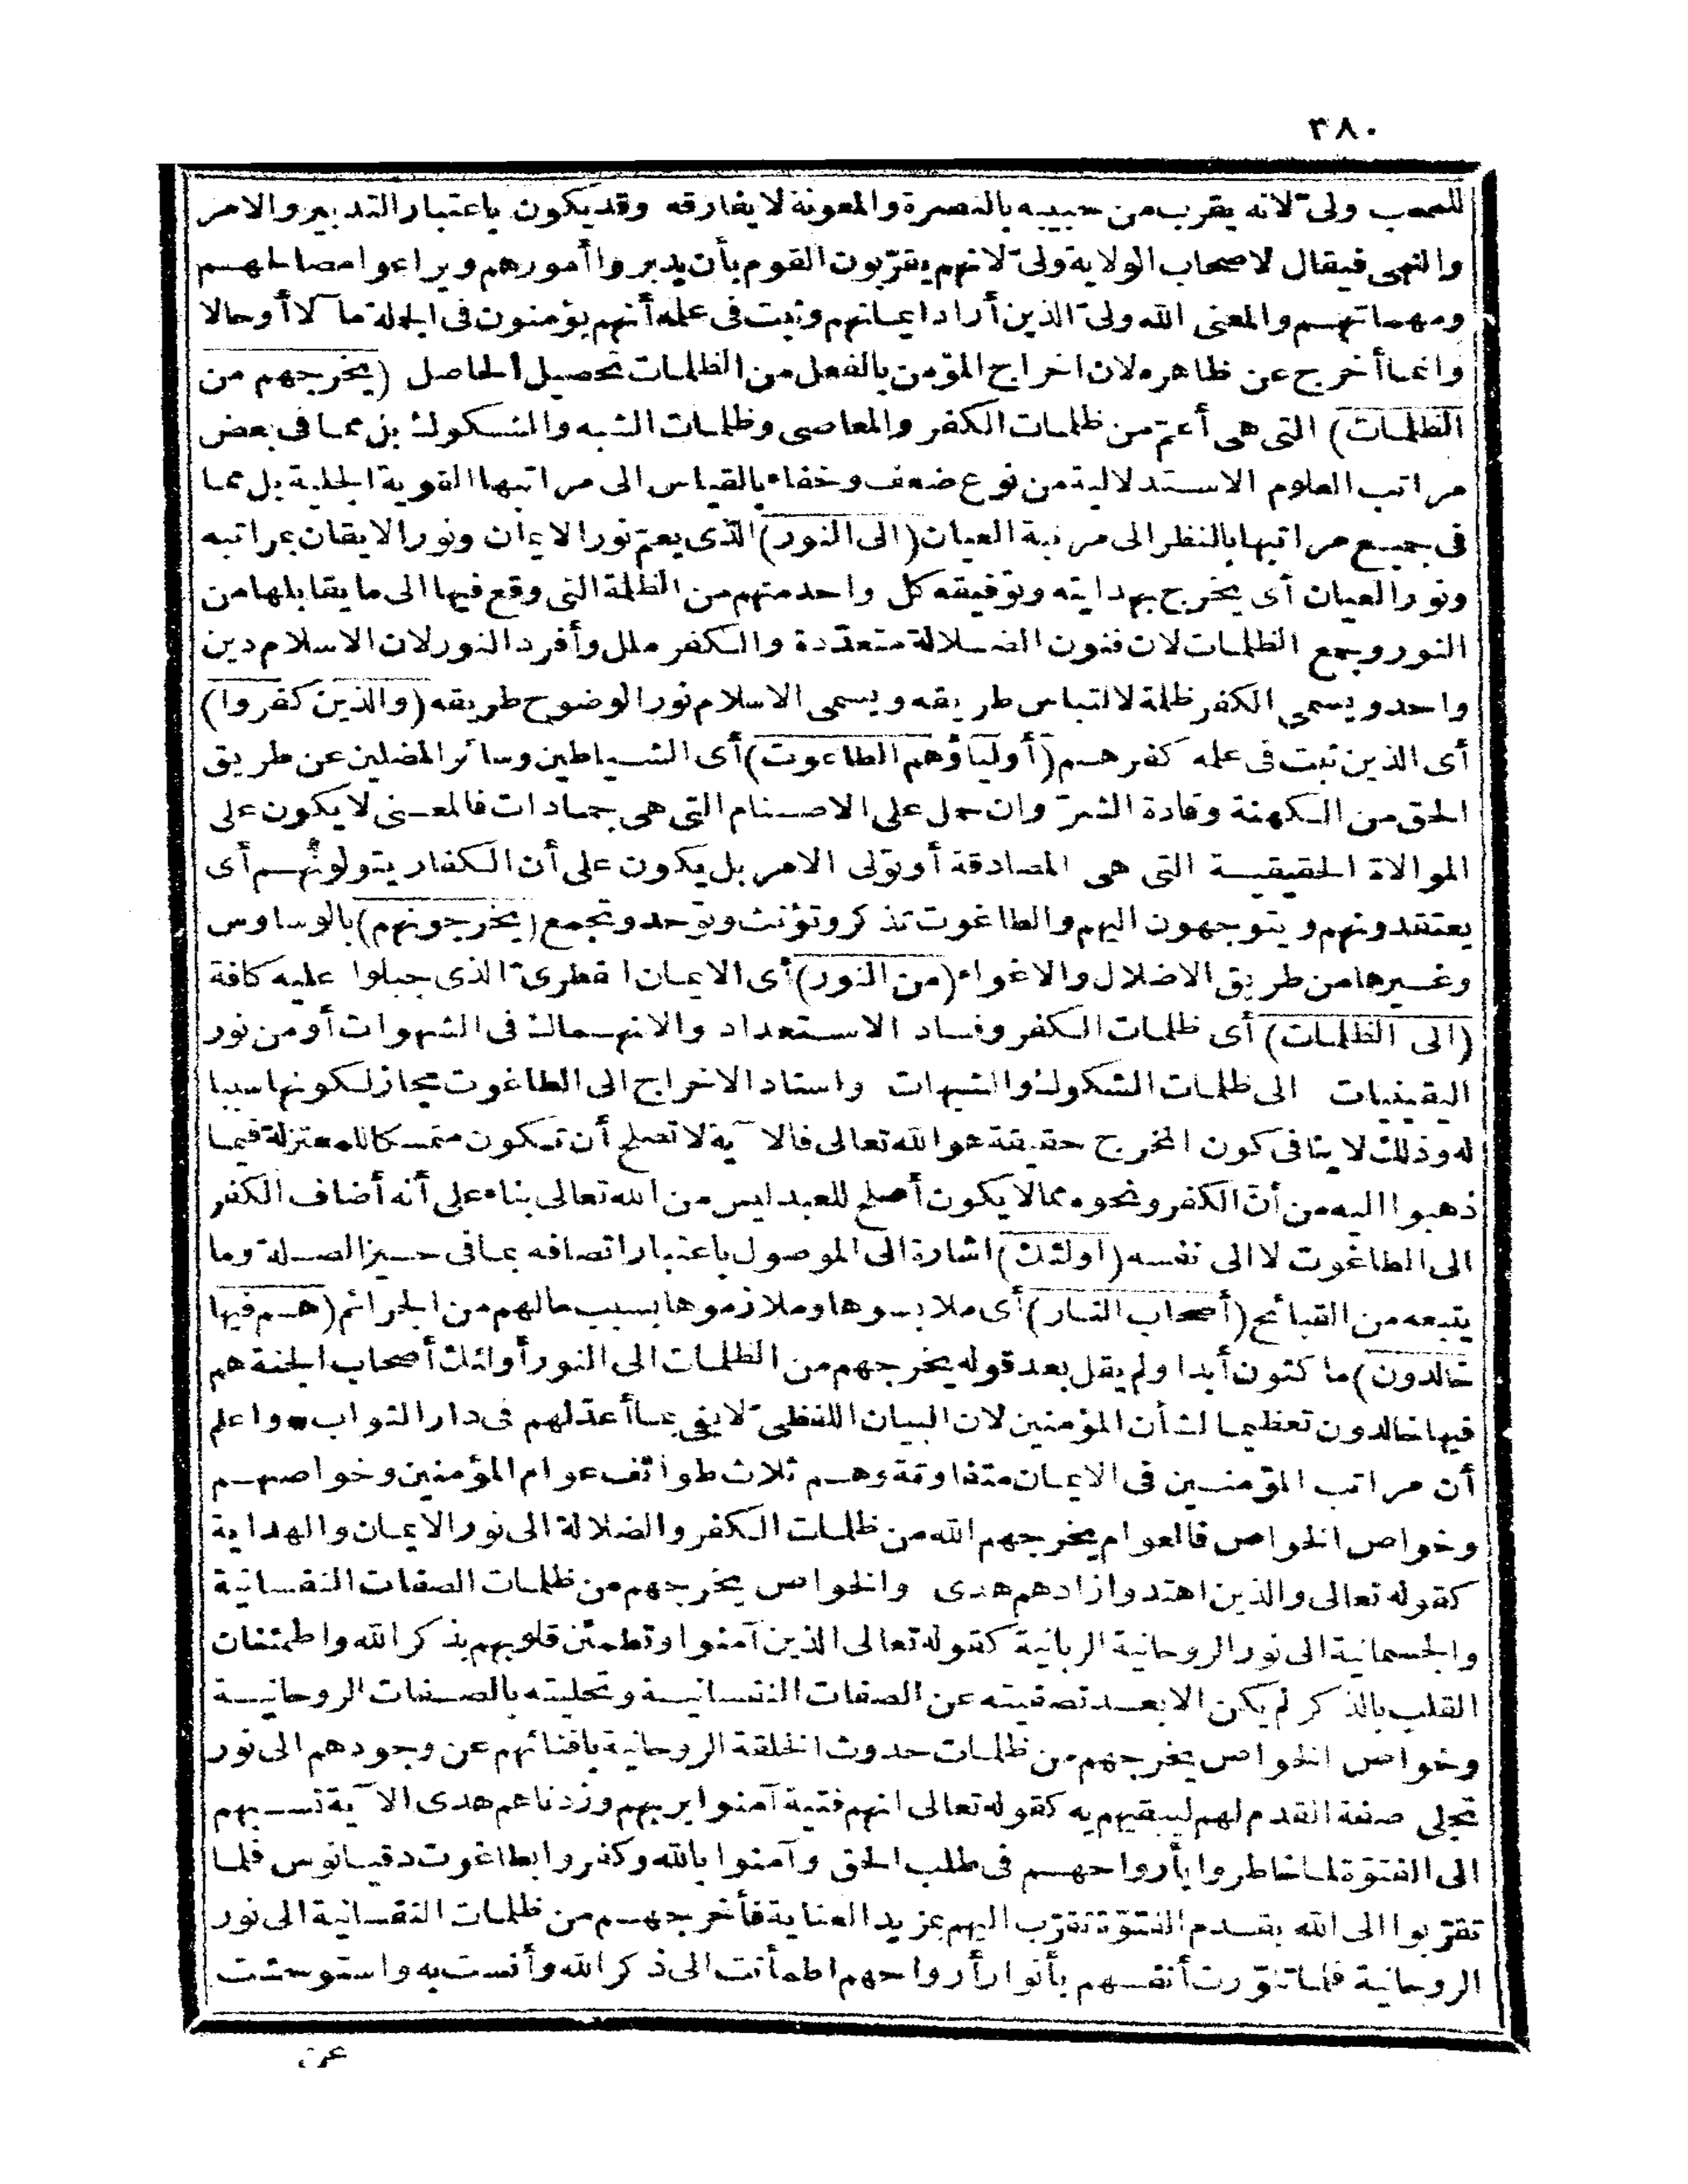 ٣٨٠
للمحب ولىّ لانه يقرب من حبيبه بالنصرة والمعونة لا يفارقه وقد يكون باعتبار التدبير والامر
والنهى فيقال لاصحاب الولاية ولىّ لانهم يقرّبون القوم بأن يدبروا أمورهم ويراعوا مصالحهم
ومهماتهم والمعنى الله ولىّ الذين أراد ايمانهم وثبت فى علمه أنهم يؤمنون فى الجملة مآلا أو حالا
وانما أخرج عن ظاهره لان اخراج المؤمن بالفعل من الظلمات تحصيل الحاصل (يخرجهم من
الظلمات) التى هى أعمّ من ظلمات الكفر والمعاصى وظلمات الشبه والشكوك بل مما فى بعض
مراتب العلوم الاستدلالية من نوع ضعف وخفاء بالقياس الى مراتبها القوية الجلية بل مما
فى جميع مراتبها بالنظر الى مرتبة العيان (الى النور) الذى يعمّ نور الايمان ونور الايقان بمراتبه
ونور العيان أى يخرج بهدايته وتوفيقه كل واحد منهم من الظلمة التى وقع فيها الى ما يقابلها من
النور وجمع الظلمات لان فنون الضلالة متعدّدة والكفر ملل وأفرد النور لان الاسلام دين
واحد ويسمى الكفر ظلمة لالتباس طريقه ويسمى الاسلام نورا لوضوح طريقه (والذين كفروا)
أى الذين ثبت فى علمه كفرهم (أولياؤهم الطاغوت) أى الشياطين وسائر المضلين عن طريق
الحق من الكهنة وقادة الشرّ وان حمل على الاصنام التى هى جمادات فالمعنى لا يكون على
الموالاة الحقيقية التى هى المصادقة أو تولى الامر بل يكون على أن الكفار يتولونهم أى
يعتقدونهم ويتوجهون اليهم والطاغوت تذكر وتؤنث وتوحد وتجمع (يخرجونهم) بالوساوس
وغيرها من طريق الاضلال والاغواء (من النور) أى الايمان الفطرىّ الذى جبلوا عليه كافة
(الى الظلمات) أى ظلمات الكفر وفساد الاستعداد والانهماك فى الشهوات أو من نور
اليقينيات الى ظلمات الشكوك والشبهات واسناد الاخراج الى الطاغوت مجاز لكونها سببا
له وذلك لا ينافى كون المخرج حقيقة هو الله تعالى فالآية لا تصلح أن تكون متمسكا للمعتزلة فيما
ذهبوا اليه من أنّ الكفر ونحوه مما لا يكون أصلح للعبد ليس من الله تعالى بناء على أنه أضاف الكفر
الى الطاغوت لا الى نفسه (أولئك) اشارة الى الموصول باعتبار اتصافه بما فى حيز الصلة وما
يتبعه من القبائح (أصحاب النار) أى ملابسوها وملازموها بسبب مالهم من الجرائم (هم فيها
خالدون) ماكثون أبدا ولم يقل بعد قوله يخرجهم من الظلمات الى النور أولئك أصحاب الجنة هم
فيها خالدون تعظيما لشأن المؤمنين لان البيان اللفظىّ لا يفى بما أعدّ لهم فى دار الثواب * واعلم
أن مراتب المؤمنين فى الايمان متفاوتة وهم ثلاث طوائف عوام المؤمنين وخواصهم
وخواص الخواص فالعوام يخرجهم الله من ظلمات الكفر والضلالة الى نور الايمان والهداية
كقوله تعالى والذين اهتدوا زادهم هدى والخواص يخرجهم من ظلمات الصفات النفسانية
والجسمانية الى نور الروحانية الربانية كقوله تعالى الذين آمنوا وتطمئن قلوبهم بذكر الله واطمئنان
القلب بالذكر لم يكن الا بعد تصفيته عن الصفات النفسانية وتحليته بالصفات الروحانية
وخواص الخواص يخرجهم من ظلمات حدوث الخلقة الروحانية بافنائهم عن وجودهم الى نور
تجلى صفة القدم لهم ليبقيهم به كقوله تعالى انهم فتية آمنوا بربهم وزدناهم هدى الآية نسبهم
الى الفتوّة لما خاطروا بأرواحهم فى طلب الحق وآمنوا بالله وكفروا بطاغوت دقيانوس فلما
تقرّبوا الى الله بقدم الفتوّة تقرّب اليهم بمزيد العناية فأخرجهم من ظلمات النفسانية الى نور
الروحانية فلما تنوّرت أنفسهم بأنوار أرواحهم اطمأنت الى ذكر الله وأنست به واستوحشت
عن